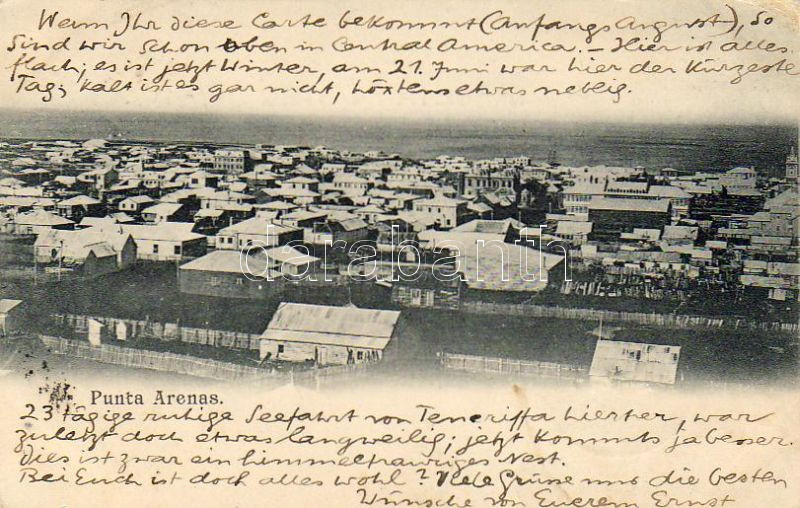 Wenn Ihr diese Carte bekommt (Anfangs August), so
sind wir schon oben in Central America. – Hier ist alles
flach; es ist jetzt Winter, am 21. Juni war hier der Kürzeste
Tag; kalt ist es gar nicht, höxtens etwas neblig.
darabanth
Punta Arenas.
23 tägige ruhige Seefahrt von Teneriffa hierher, war
zuletzt doch etwas langweilig; jetzt kommts ja besser.
Dies ist zwar ein himmeltrauriges Nest.
Bei Euch ist doch alles wohl? Viele Grüsse und die besten
Wünsche von Euerem Ernst